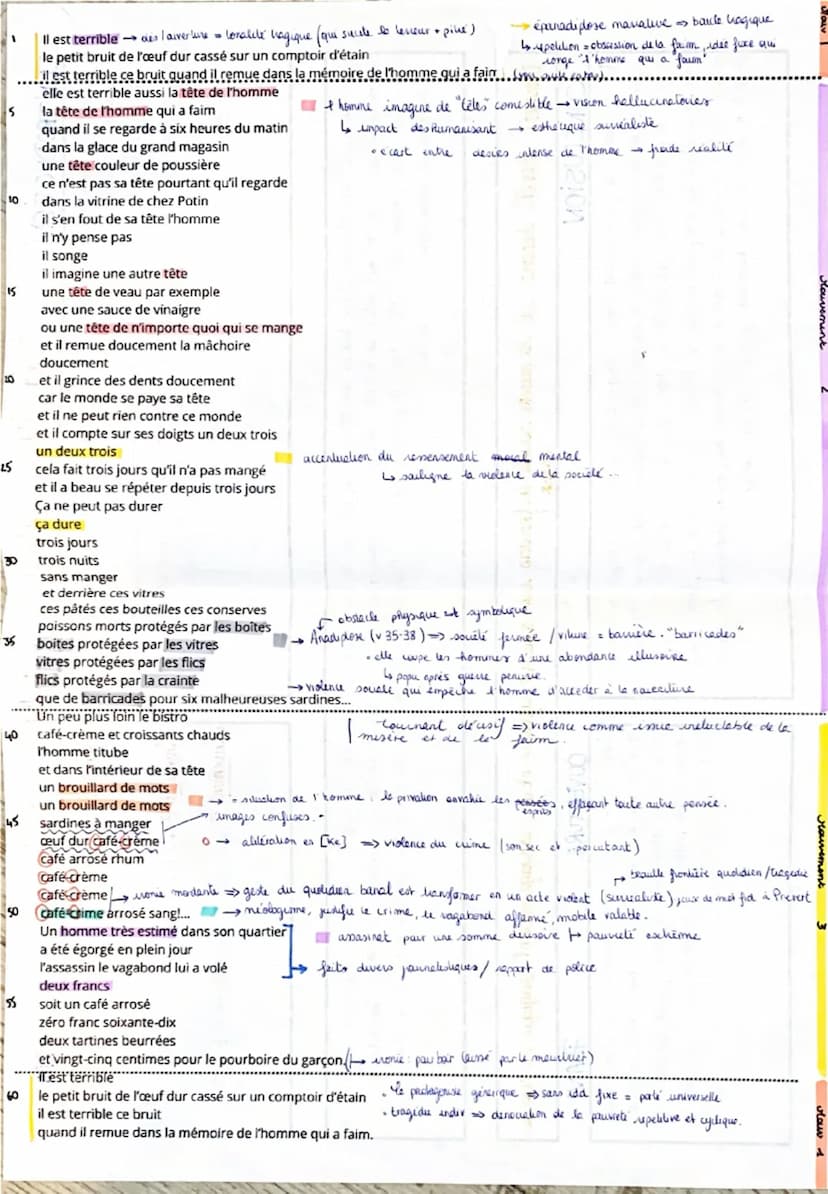 1 Il est terrible → dès l'ouverture = tonalité tragique (qui suscite la terreur + pitié)
→ épanadiplose narrative => boucle tragique
le petit bruit de l'œuf dur cassé sur un comptoir d'étain
↳ répétition = obsession de la faim, idée fixe qui
ronge "l'homme qui a faim"
il est terrible ce bruit quand il remue dans la mémoire de l'homme qui a faim
Mouv 1
elle est terrible aussi la tête de l'homme
5 la tête de l'homme qui a faim
homme imagine de "têles" comestible → vision hallucinatoires
quand il se regarde à six heures du matin
↳ impact deshumanisant → esthétique surréaliste
dans la glace du grand magasin
• écart entre désirs intense de l'homme → froide réalité
une tête couleur de poussière
ce n'est pas sa tête pourtant qu'il regarde
10 dans la vitrine de chez Potin
il s'en fout de sa tête l'homme
il n'y pense pas
il songe
il imagine une autre tête
15 une tête de veau par exemple
avec une sauce de vinaigre
ou une tête de n'importe quoi qui se mange
et il remue doucement la mâchoire
doucement
20 et il grince des dents doucement
car le monde se paye sa tête
et il ne peut rien contre ce monde
et il compte sur ses doigts un deux trois
un deux trois
accentuation du ressassement moral mental
25 cela fait trois jours qu'il n'a pas mangé
↳ souligne la violence de la société...
et il a beau se répéter depuis trois jours
Ça ne peut pas durer
ça dure
trois jours
30 trois nuits
sans manger
et derrière ces vitres
ces pâtés ces bouteilles ces conserves
poissons morts protégés par les boîtes
obstacle physique et symbolique
35 boîtes protégées par les vitres
→ Anadiplose (v 35-38) => société fermée / vitrine = barrière. "barricades"
vitres protégées par les flics
• elle coupe les hommes d'une abondance illusoire
flics protégés par la crainte
↳ popu après guerre
que de barricades pour six malheureuses sardines...
→ violence sociale qui empêche l'homme d'accéder à la nourriture
Mouvement 2
Un peu plus loin le bistro
tournant décisif => violence comme issue ineluctable de la
40 café-crème et croissants chauds
misère et de la faim.
l'homme titube
et dans l'intérieur de sa tête
un brouillard de mots
un brouillard de mots
→ = situation de l'homme : la privation envahie les pensées esprits, effaçant toute autre pensée.
45 sardines à manger
images confuses.
œuf dur café-crème
O → allitération en [Ke] => violence du crime (son sec et percutant)
café arrosé rhum
café-crème
→ brouille frontière quotidien / tragédie
café-crème
→ ironie mordante => geste du quotidien banal est transformer en un acte violent (surréaliste) jeux de mot à Prévert
50 café-crime arrosé sang!...
→ néologisme, justifie le crime, le vagabond affamé, mobile valable.
Un homme très estimé dans son quartier
assasinat pour une somme dérisoire → pauvreté extrême
a été égorgé en plein jour
l'assassin le vagabond lui a volé
→ faits divers journalistiques / rapport de police
deux francs
55 soit un café arrosé
zéro franc soixante-dix
deux tartines beurrées
et vingt-cinq centimes pour le pourboire du garçon.
(→ ironie : pourboir laissé par le meurtrier)
Mouvement 3
Il est terrible
60 le petit bruit de l'œuf dur cassé sur un comptoir d'étain
• le protagoniste générique => sans idd fixe = porté universelle
il est terrible ce bruit
• tragédie => dénonciation de la pauvreté répétitive et cyclique.
quand il remue dans la mémoire de l'homme qui a faim.
Mouv 1